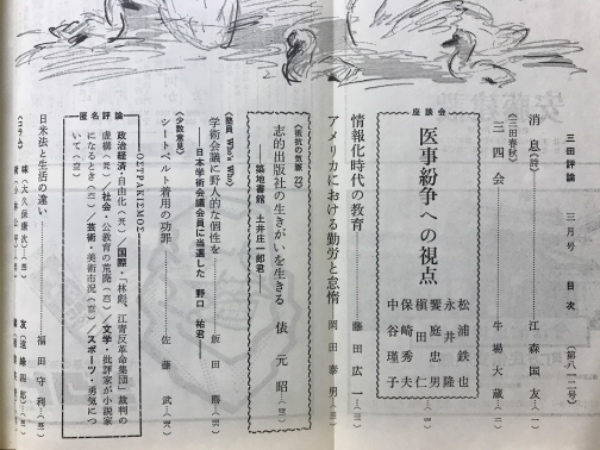 三田評論 三月号 目次 (第八一二号)
消息(詩)
江森国友
〈三田春秋〉
三四会
牛場大蔵
座談会
医事紛争への視点
松浦鉄也
永井隆
饗庭忠男
槇田仁
保崎秀夫
中谷瑾子
情報化時代の教育
藤田広一
アメリカにおける勤労と怠惰
岡田泰男
〈抵抗の気脈 22〉
志的出版社の生きがいを生きる
俵元昭
――築地書館 土井庄一郎君――
〈塾員 Who's Who〉
学術会議に野人的な個性を
飯田
――日本学術会議会員に当選した 野口 祐君――
〈少数意見〉
シートベルト着用の功罪
佐藤武
OΣTPAKIΣMOΣ
匿名評論
政治経済・自由化/国際・「林彪、江青反革命集団」裁判の
虚構/社会・公教育の荒廃/文学・批評家が小説家
になるとき/芸術・美術市況/スポーツ・勇気につ
いて
日米法と生活の違い
福田守利